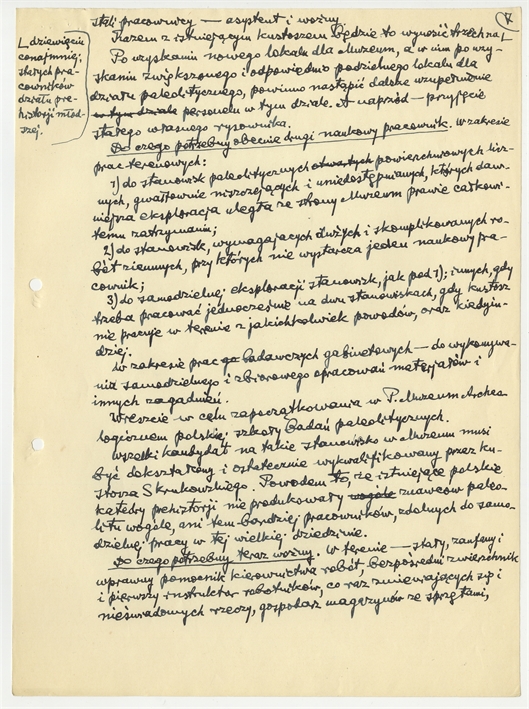 V
stali pracownicy — asystent i woźny.
Razem z istniejącym kustoszem będzie to wynosić trzech na
⌊dziewięciu
conajmniej
stałych pra-
cowników
działu pre-
historji młod-
szej.
Po uzyskaniu nowego lokalu dla Muzeum, a w nim po uzy-
skaniu zwiększonego i odpowiednio podzielnego lokalu dla
działu paleolitycznego, powinno nastąpić dalsze uzupełnienie
w tym dziale personelu w tym dziale. A naprzód — przyjęcie
stałego własnego rysownika.
Do czego potrzebny obecnie drugi naukowy pracownik. W zakresie
prac terenowych:
1) do stanowisk paleolitycznych otwartych powierzchniowych licz-
nych, gwałtownie niszczejących i uniedostępnianych, których daw-
niejsza eksploracja uległa ze strony Muzeum prawie całkowi-
temu zatrzymaniu;
2) do stanowisk, wymagających dużych i skomplikowanych ro-
bót ziemnych, przy których nie wystarcza jeden naukowy pra-
cownik;
3) do samodzielnej eksploracji stanowisk, jak pod 1); innych, gdy
trzeba pracować jednocześnie na dwu stanowiskach, gdy kustosz
nie pracuje w terenie z jakichkolwiek powodów, oraz kiedyin-
dziej.
W zakresie prac badawczych gabinetowych — do wykonywa-
nia samodzielnego i zbiorowego opracowań materjałów i
innych zagadnień.
Wreszcie w celu zapoczątkowania w P. Muzeum Archeo-
logicznem polskiej szkoły badań paleolitycznych.
Wszelki kandydat na takie stanowisko w Muzeum musi
być dokształcony i ostatecznie wykwalifikowany przez ku-
stosza S. Krukowskiego. Powodem to, że istniejące polskie
katedry prehistorji nie produkowały wogóle znawców paleo-
litu wogóle, ani tem bardziej pracowników, zdolnych do samo-
dzielnej pracy w tej wielkiej dziedzinie.
Do czego potrzebny teraz woźny. W terenie — stały, zaufany i
wprawny pomocnik kierownictwa robót, bezpośredni zwierzchnik
i pierwszy instruktor robotników, co raz zmieniających się i
nieświadomych rzeczy, gospodarz magazynów ze sprzętami,